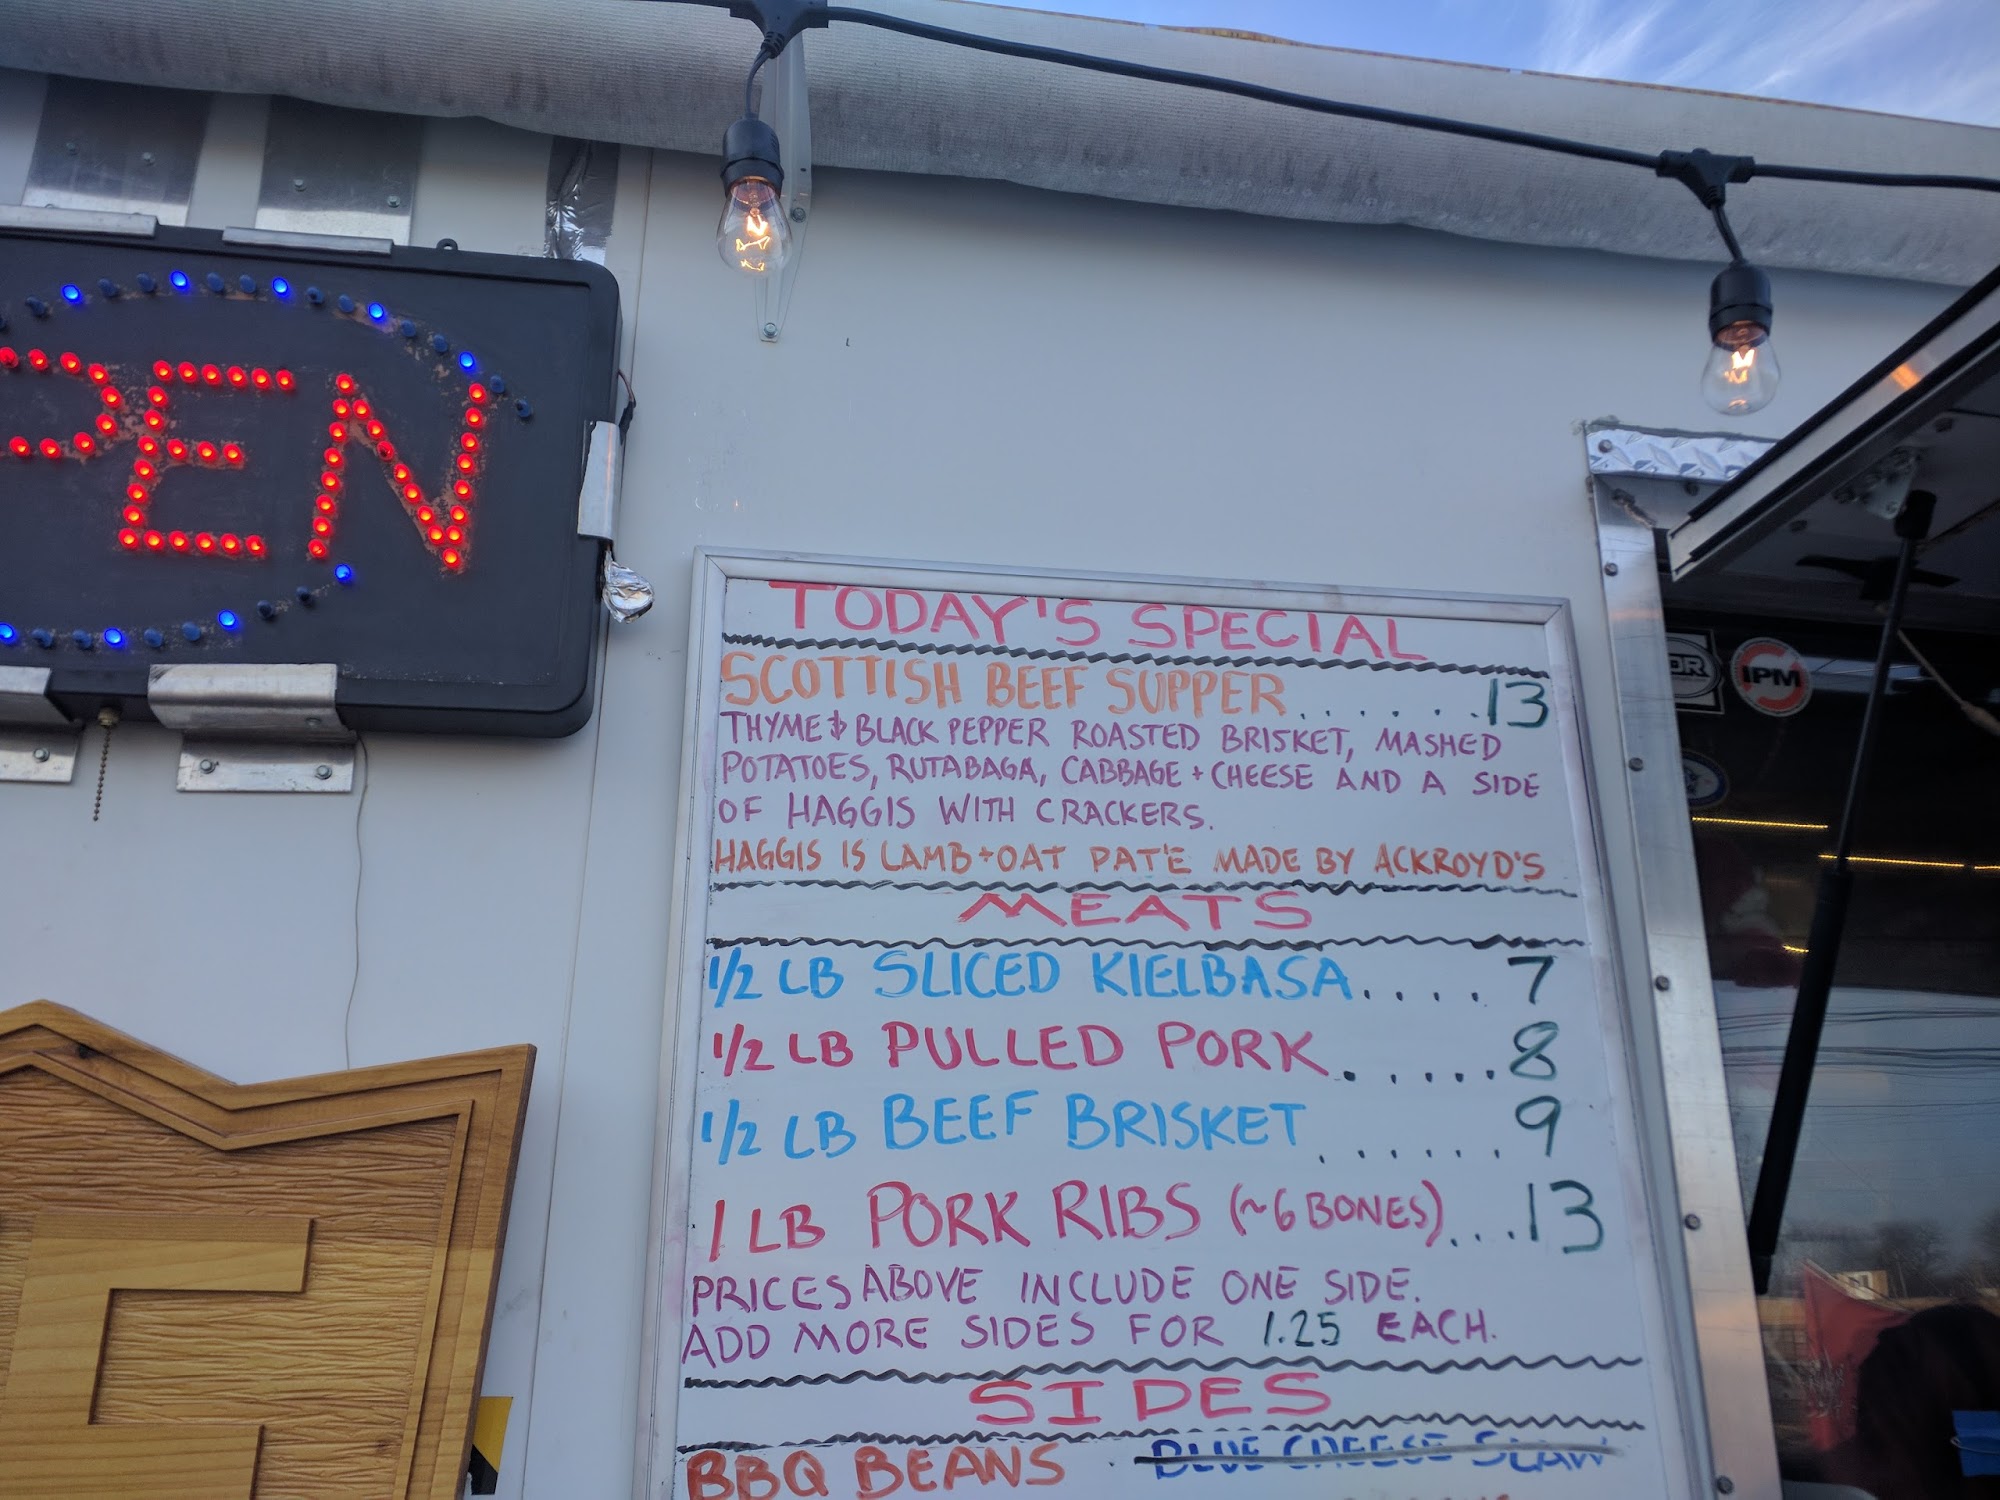 PEN
TODAY'S SPECIAL
SCOTTISH BEEF SUPPER.......13
THYME & BLACK PEPPER ROASTED BRISKET, MASHED
POTATOES, RUTABAGA, CABBAGE + CHEESE AND A SIDE
OF HAGGIS WITH CRACKERS.
HAGGIS IS LAMB + OAT PATÉ MADE BY ACKROYD'S
MEATS
1/2 LB SLICED KIELBASA.... 7
1/2 LB PULLED PORK......8
1/2 LB BEEF BRISKET.......9
1 LB PORK RIBS (~6 BONES)...13
PRICES ABOVE INCLUDE ONE SIDE.
ADD MORE SIDES FOR 1.25 EACH.
SIDES
BBQ BEANS · BLUE CHEESE SLAW
IPM